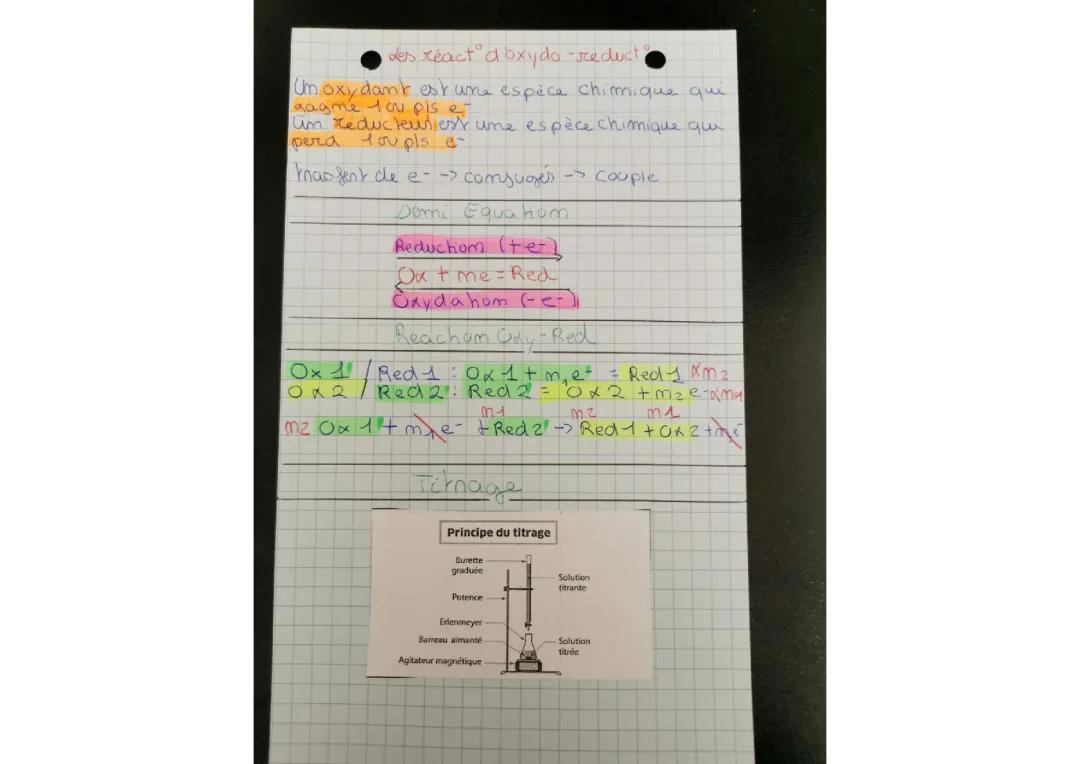 Les réact° d'oxydo-reduct°
Un oxydant est une espèce chimique qui
gagne 1 ou pls e-
Un réducteur est une espèce chimique qui
perd 1 ou pls e-
transfert de e- -> conjugués -> couple
Demi Equation
Reduction (+e-)
Ox + ne = Red
Oxydation (-e-)
Reaction Oxy-Red
Ox 1 / Red 1 : Ox 1 + n1 e- = Red 1 x n2
Ox 2 / Red 2 : Red 2 = Ox 2 + n2 e- x n1
n1 n2 n1
n2 Ox 1 + n1 e- + Red 2 -> Red 1 + Ox 2 + n2 e-
Titrage
Principe du titrage
Burette
graduée
Solution
titrante
Potence
Erlenmeyer
Barreau aimanté
Solution
titrée
Agitateur magnétique